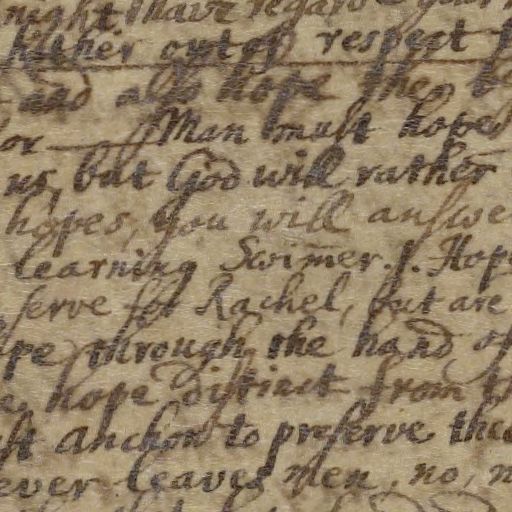 might have regard
hither out of respect
and also hope the be
or — Man must hope
us, but God will rather
hopes, you will answe
learning Swim̅er. /. Hope
serve for Rachel, but are
ope through the hand of
hope distinct from th
st anchor to preserve the
ever leaves men, no, n